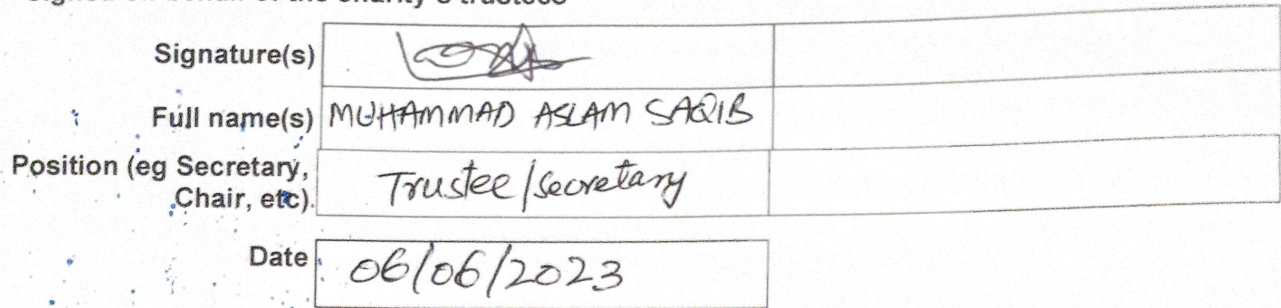 Signature(s)
Full name(s) MUHAMMAD ASLAM SAQIB
Position (eg Secretary, Trustee/secretary
Chair, etc)
Date 06/06/2023